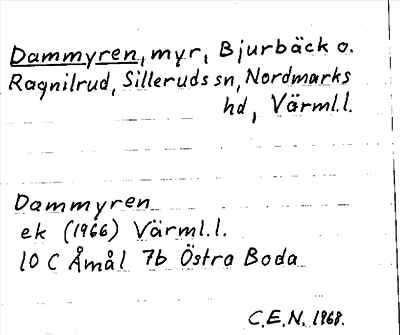 Dammyren, myr, Bjurbäck o.
Ragnilrud, Silleruds sn, Nordmarks
hd, Värml.l.
Dammyren
ek (1966) Värml.l.
10 C Åmål 7b Östra Boda
C.E.N. 1968.